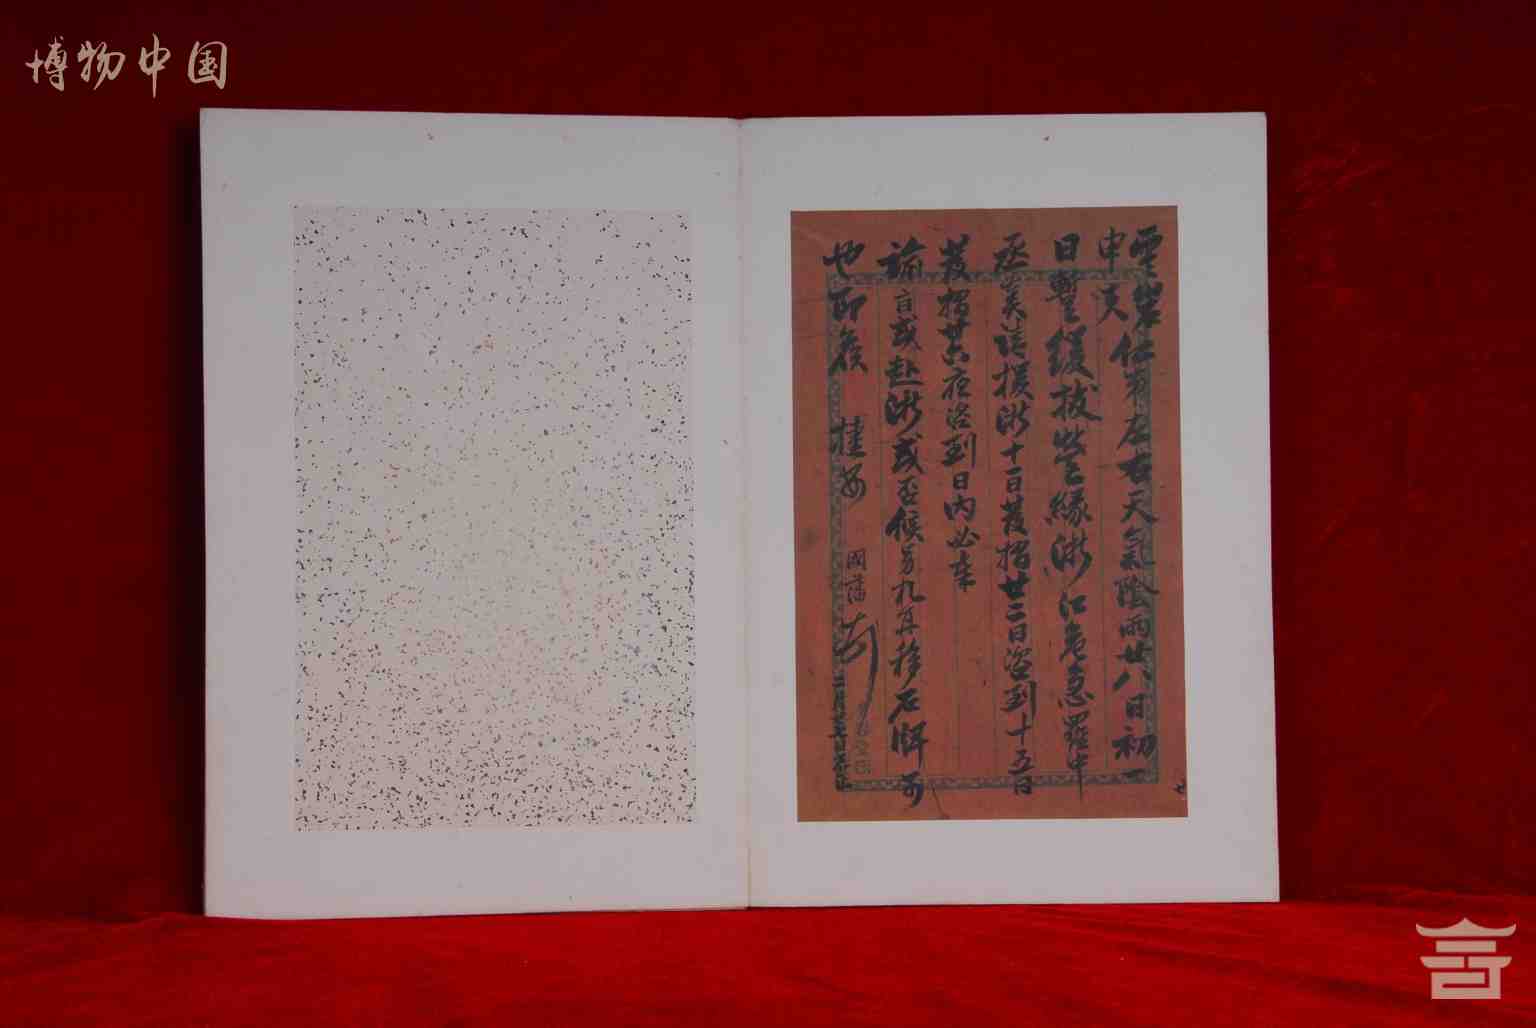 博物中国
雲岩仁弟左右天氣陰雨廿八日初一
申夫
日暫緩拔營緣浙江危急羅中
丞奏請援浙十一日發摺廿二日咨到十五日
發摺廿六夜咨到日內必奉
諭旨或赴浙或否候芳九再移石牌可
也即候 捷安 國藩
二月廿七日